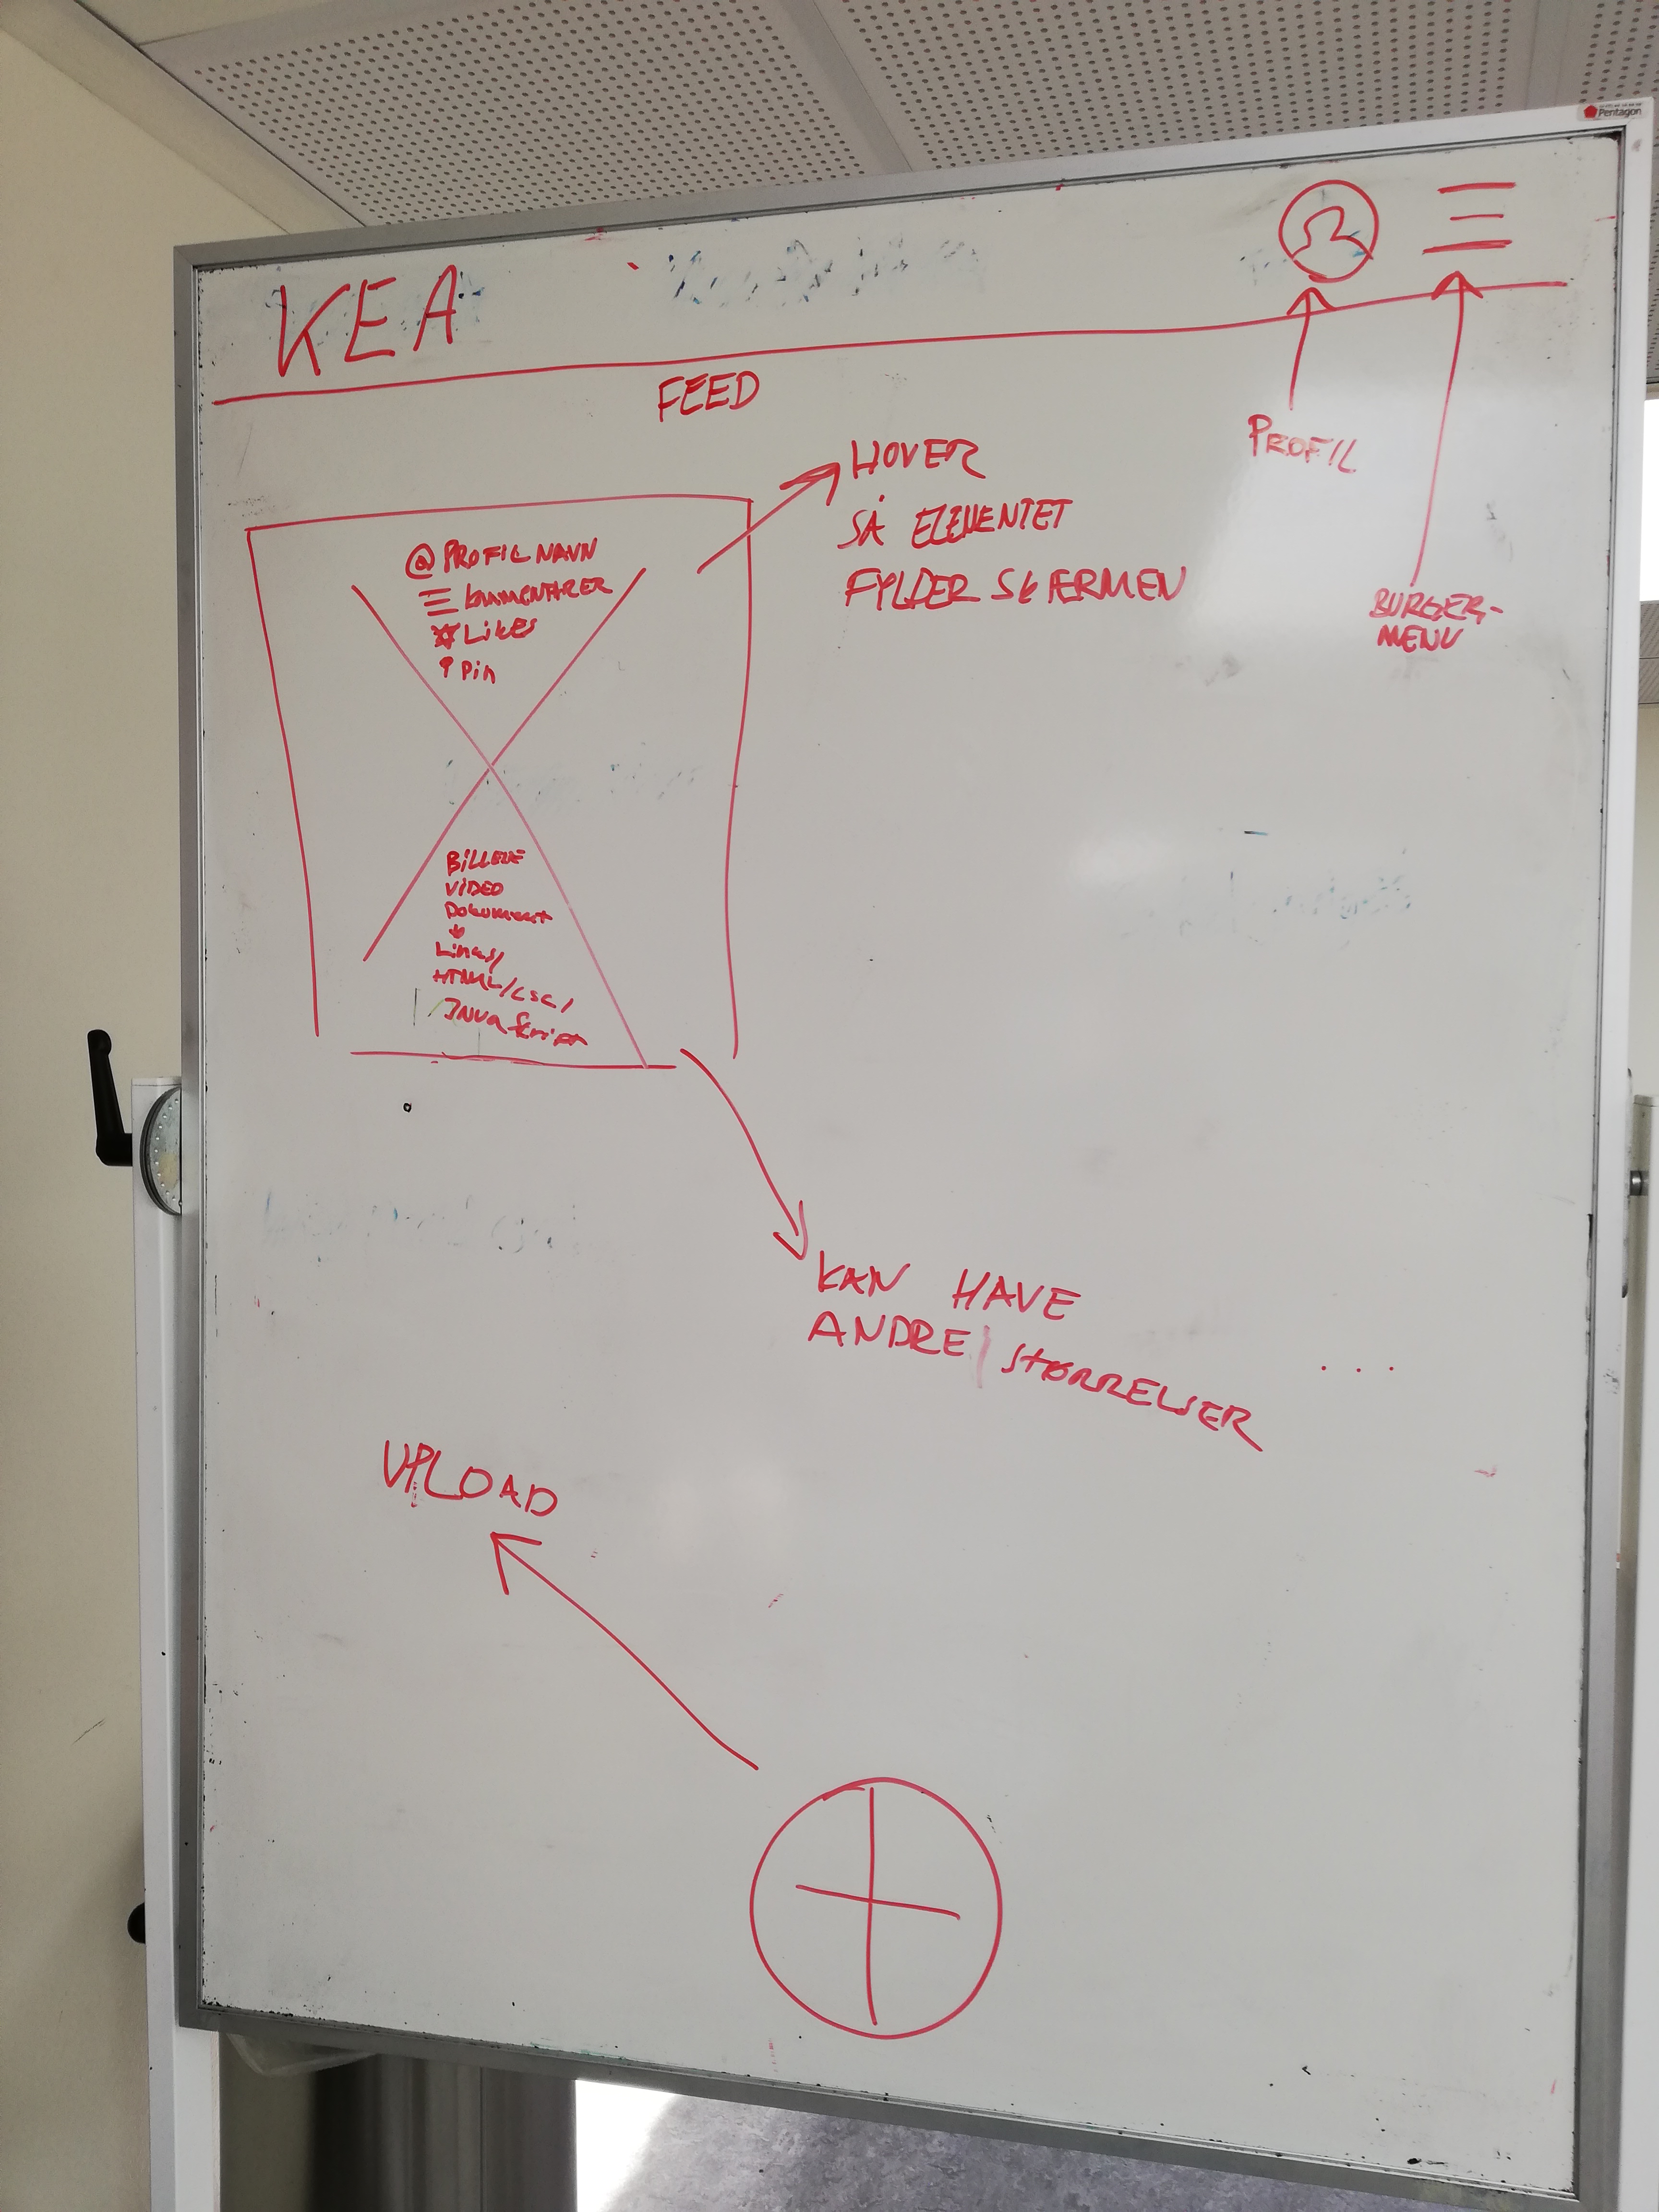 Pentagon
KEA
FEED
PROFIL
BURGER-
MENU
HOVER
SÅ ELEMENTET
FYLDER SKÆRMEN
@ PROFILNAVN
KOMMENTARER
Likes
Pin
BiLLEDE
ViDEO
Dokument
Links/
HTML/CSS/
JavaScript
KAN HAVE
ANDRE STØRRELSER
...
UPLOAD